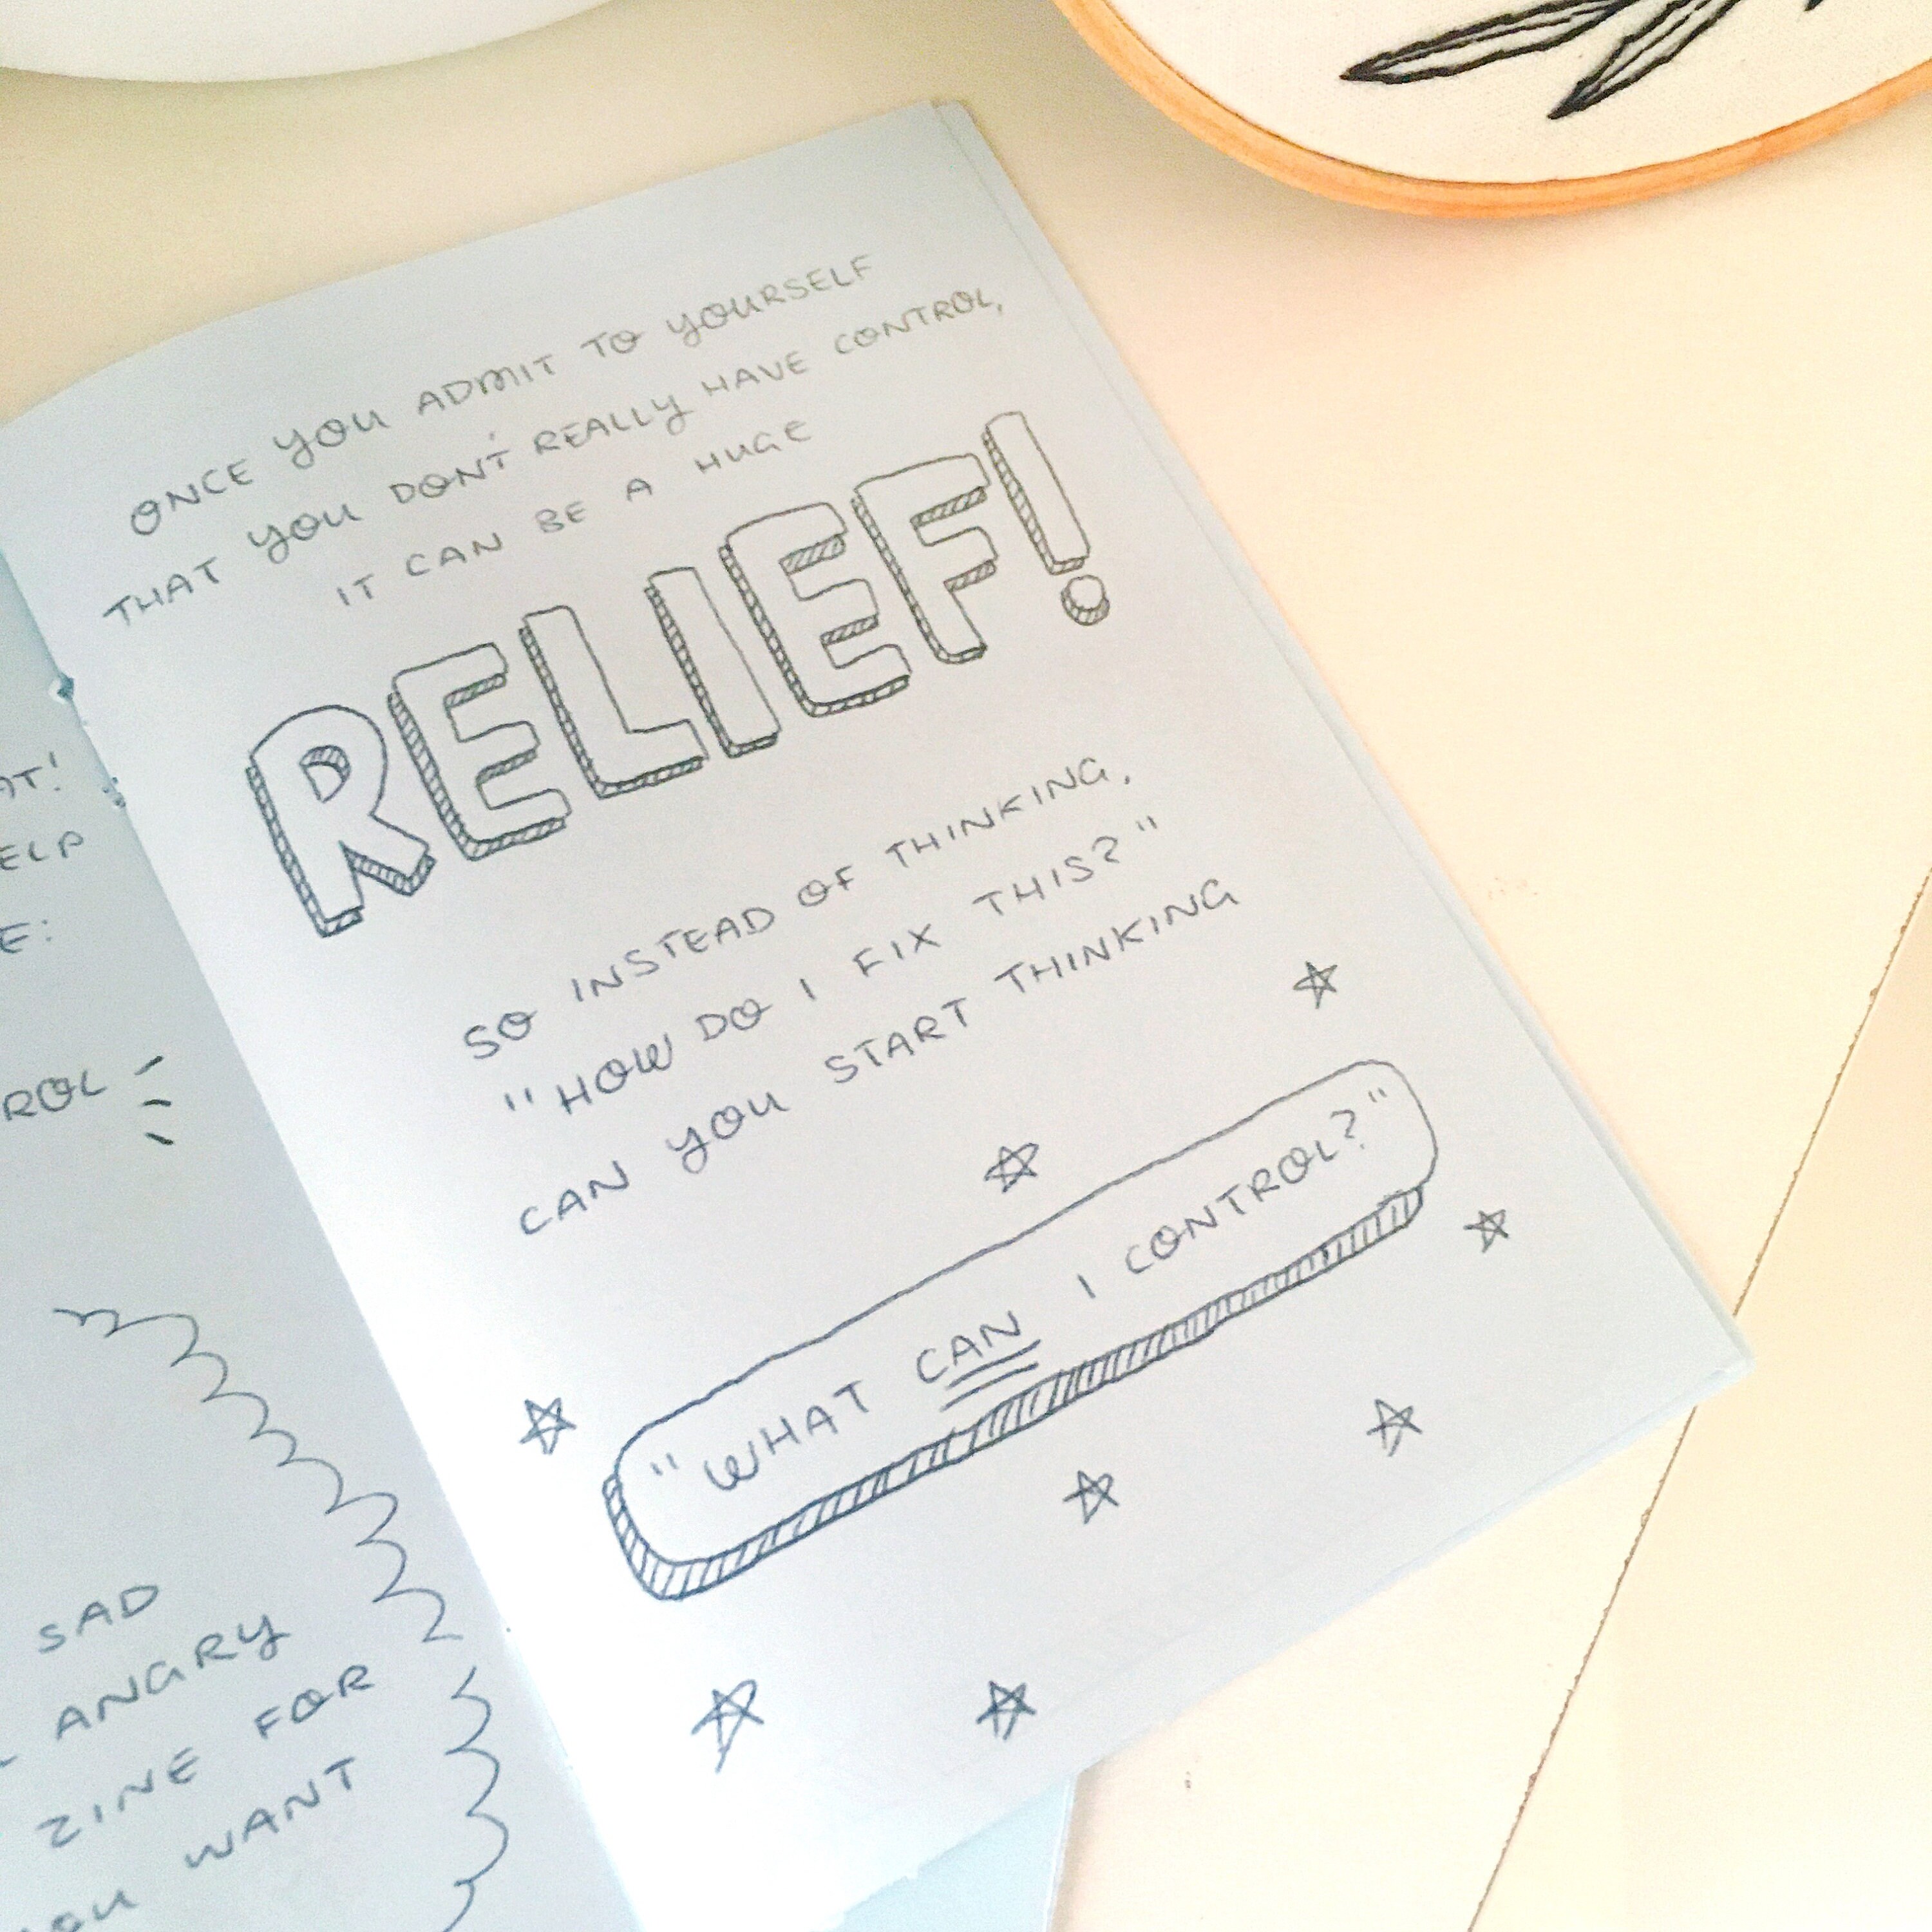 AT!
ELP
E:
ROL
SAD
ANGRY
ZINE FOR
WANT
ONCE YOU ADMIT TO YOURSELF
THAT YOU DON'T REALLY HAVE CONTROL,
IT CAN BE A HUGE
RELIEF!
SO INSTEAD OF THINKING,
"HOW DO I FIX THIS?"
CAN YOU START THINKING
"WHAT CAN I CONTROL?"